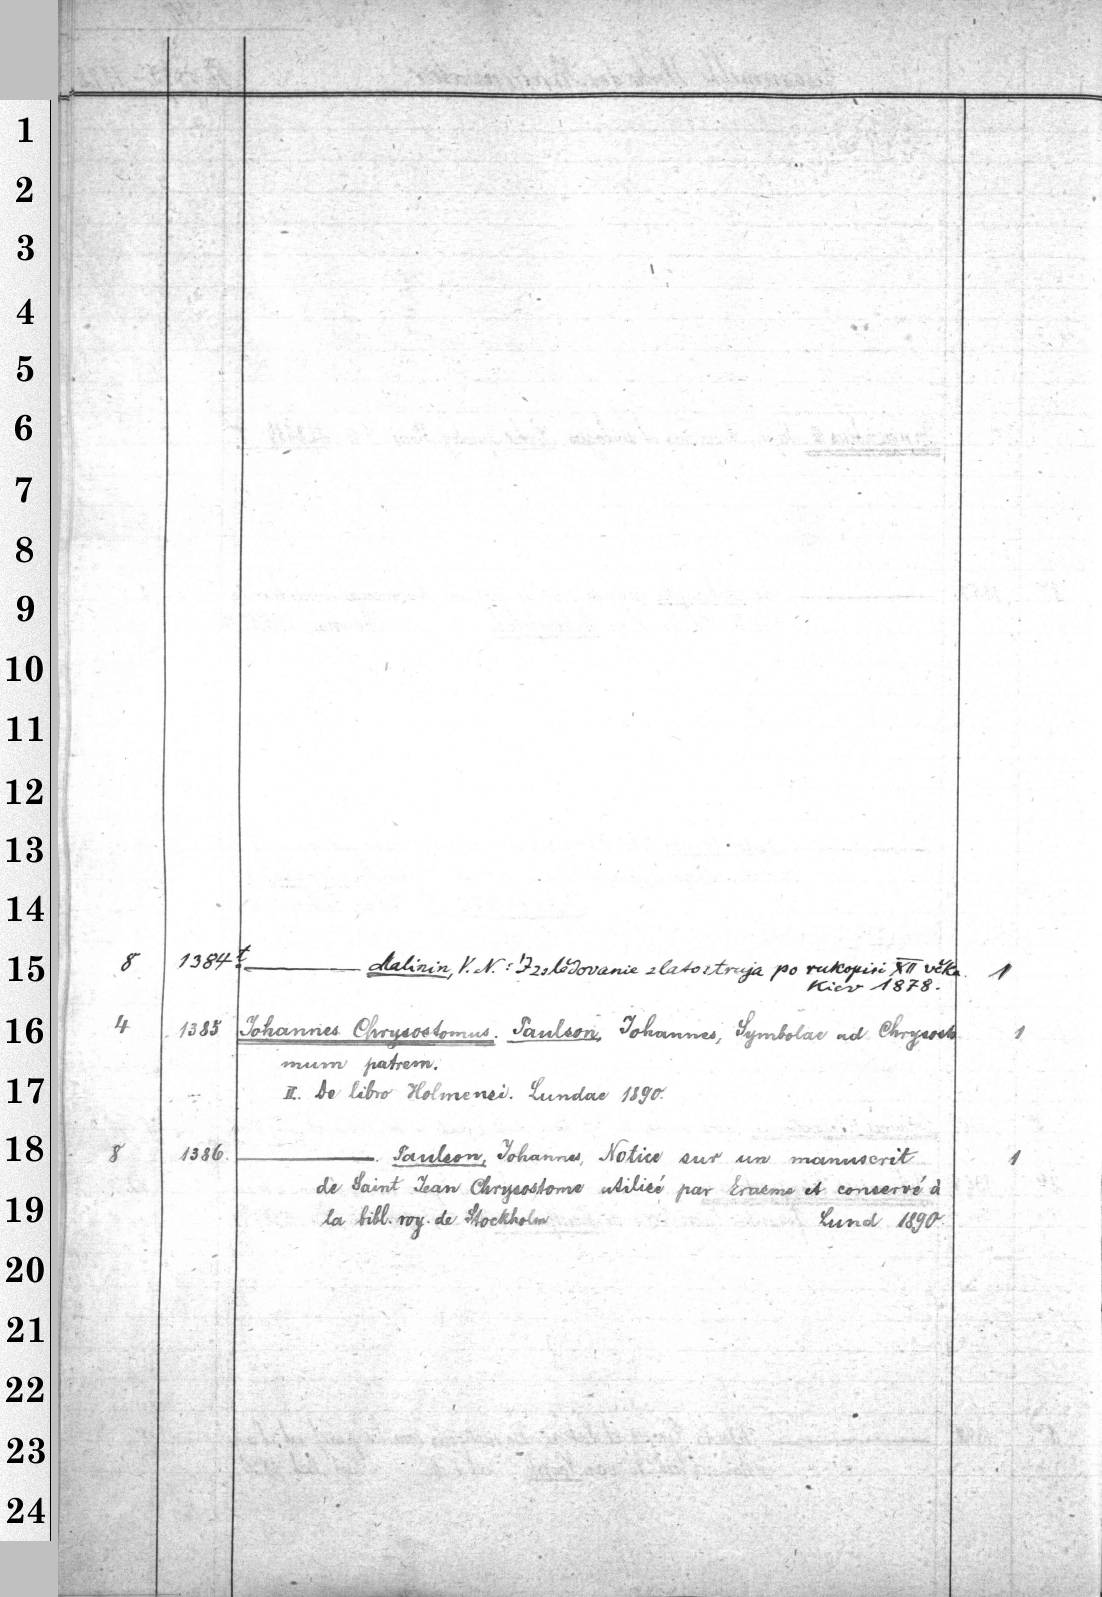 1
2
3
4
5
6
7
8
9
10
11
12
13
14
15
16
17
18
19
20
21
22
23
24
8 1384t ——— Malinin, V. N.: Izslědovanie zlatostruja po rukopisi XII věka 1
Kiev 1878.
4 1385 Johannes Chrysostomus. Paulson, Johannes, Symbolae ad Chrysosto 1
mum patrem.
II. De libro Holmensi. Lundae 1890.
8 1386. ———. Paulson, Johannes, Notice sur un manuscrit 1
de Saint Jean Chrysostome utilisé par Erasme et conservé à
la bibl. roy. de Stockholm Lund 1890